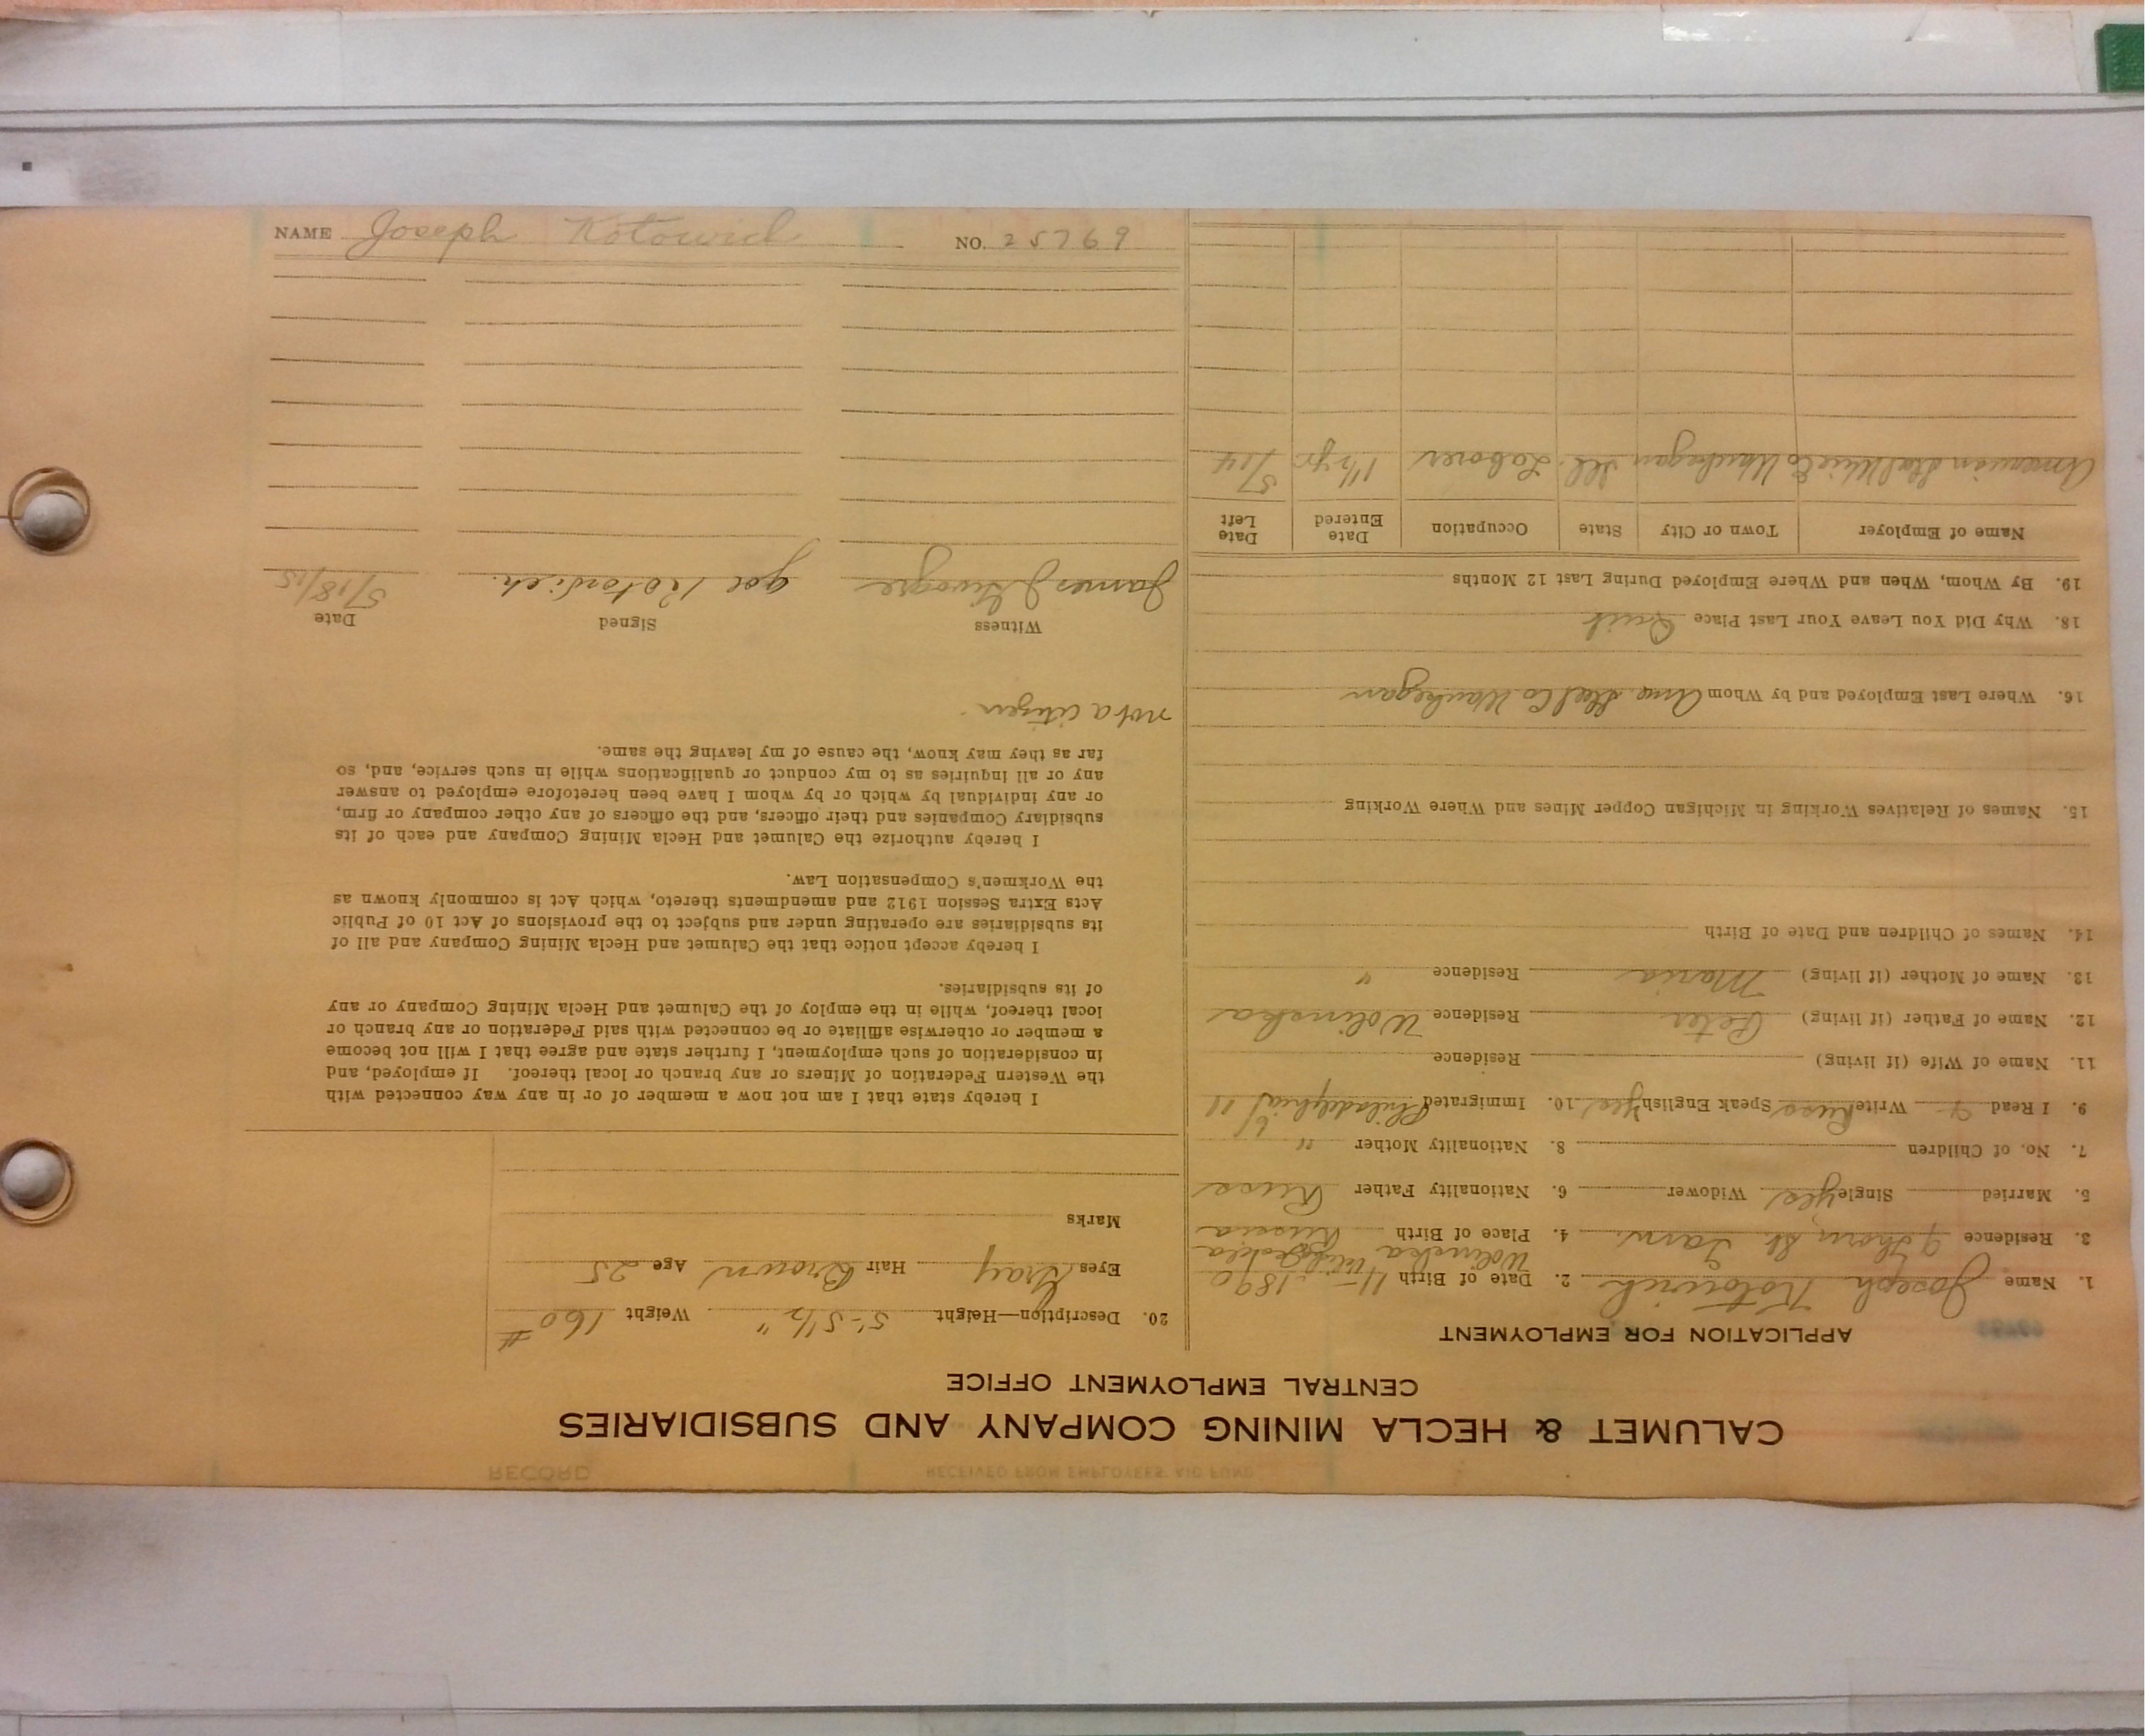 CALUMET & HECLA MINING COMPANY AND SUBSIDIARIES
CENTRAL EMPLOYMENT OFFICE
APPLICATION FOR EMPLOYMENT
1. Name Joseph Kotowich 2. Date of Birth 11- 1890
Wolinska
3. Residence 9 Thorn St. Laur. 4. Place of Birth Russia
5. Married Single yes Widower 6. Nationality Father Russ
7. No. of Children 8. Nationality Mother "
9. I Read & Write Russ Speak English yes 10. Immigrated Philadelphia 6/11
11. Name of Wife (if living) Residence
12. Name of Father (if living) Peter Residence Wolinska
13. Name of Mother (if living) Maria Residence "
14. Names of Children and Date of Birth
15. Names of Relatives Working in Michigan Copper Mines and Where Working
16. Where Last Employed and by Whom Ame. Steel Co Waukegan
18. Why Did You Leave Your Last Place Quit
19. By Whom, When and Where Employed During Last 12 Months
Name of Employer Town or City State Occupation Date Entered Date Left
American Steel Wire Co Waukegan Ill. Laborer 1 1/2 yr 5/14
20. Description—Height 5'-5 1/2" Weight 160 #
Eyes Gray Hair Brown Age 25
Marks
I hereby state that I am not now a member of or in any way connected with
the Western Federation of Miners or any branch or local thereof. If employed, and
in consideration of such employment, I further state and agree that I will not become
a member or otherwise affiliate or be connected with said Federation or any branch or
local thereof, while in the employ of the Calumet and Hecla Mining Company or any
of its subsidiaries.
I hereby accept notice that the Calumet and Hecla Mining Company and all of
its subsidiaries are operating under and subject to the provisions of Act 10 of Public
Acts Extra Session 1912 and amendments thereto, which Act is commonly known as
the Workmen's Compensation Law.
I hereby authorize the Calumet and Hecla Mining Company and each of its
subsidiary Companies and their officers, and the officers of any other company or firm,
or any individual by which or by whom I have been heretofore employed to answer
any or all inquiries as to my conduct or qualifications while in such service, and, so
far as they may know, the cause of my leaving the same.
not a citizen
Witness Signed Date
James J joe Kotowich. 5/18/15
NAME Joseph Kotowich NO. 25769
RECORD
RECEIVED FROM EMPLOYEES' AID FUND